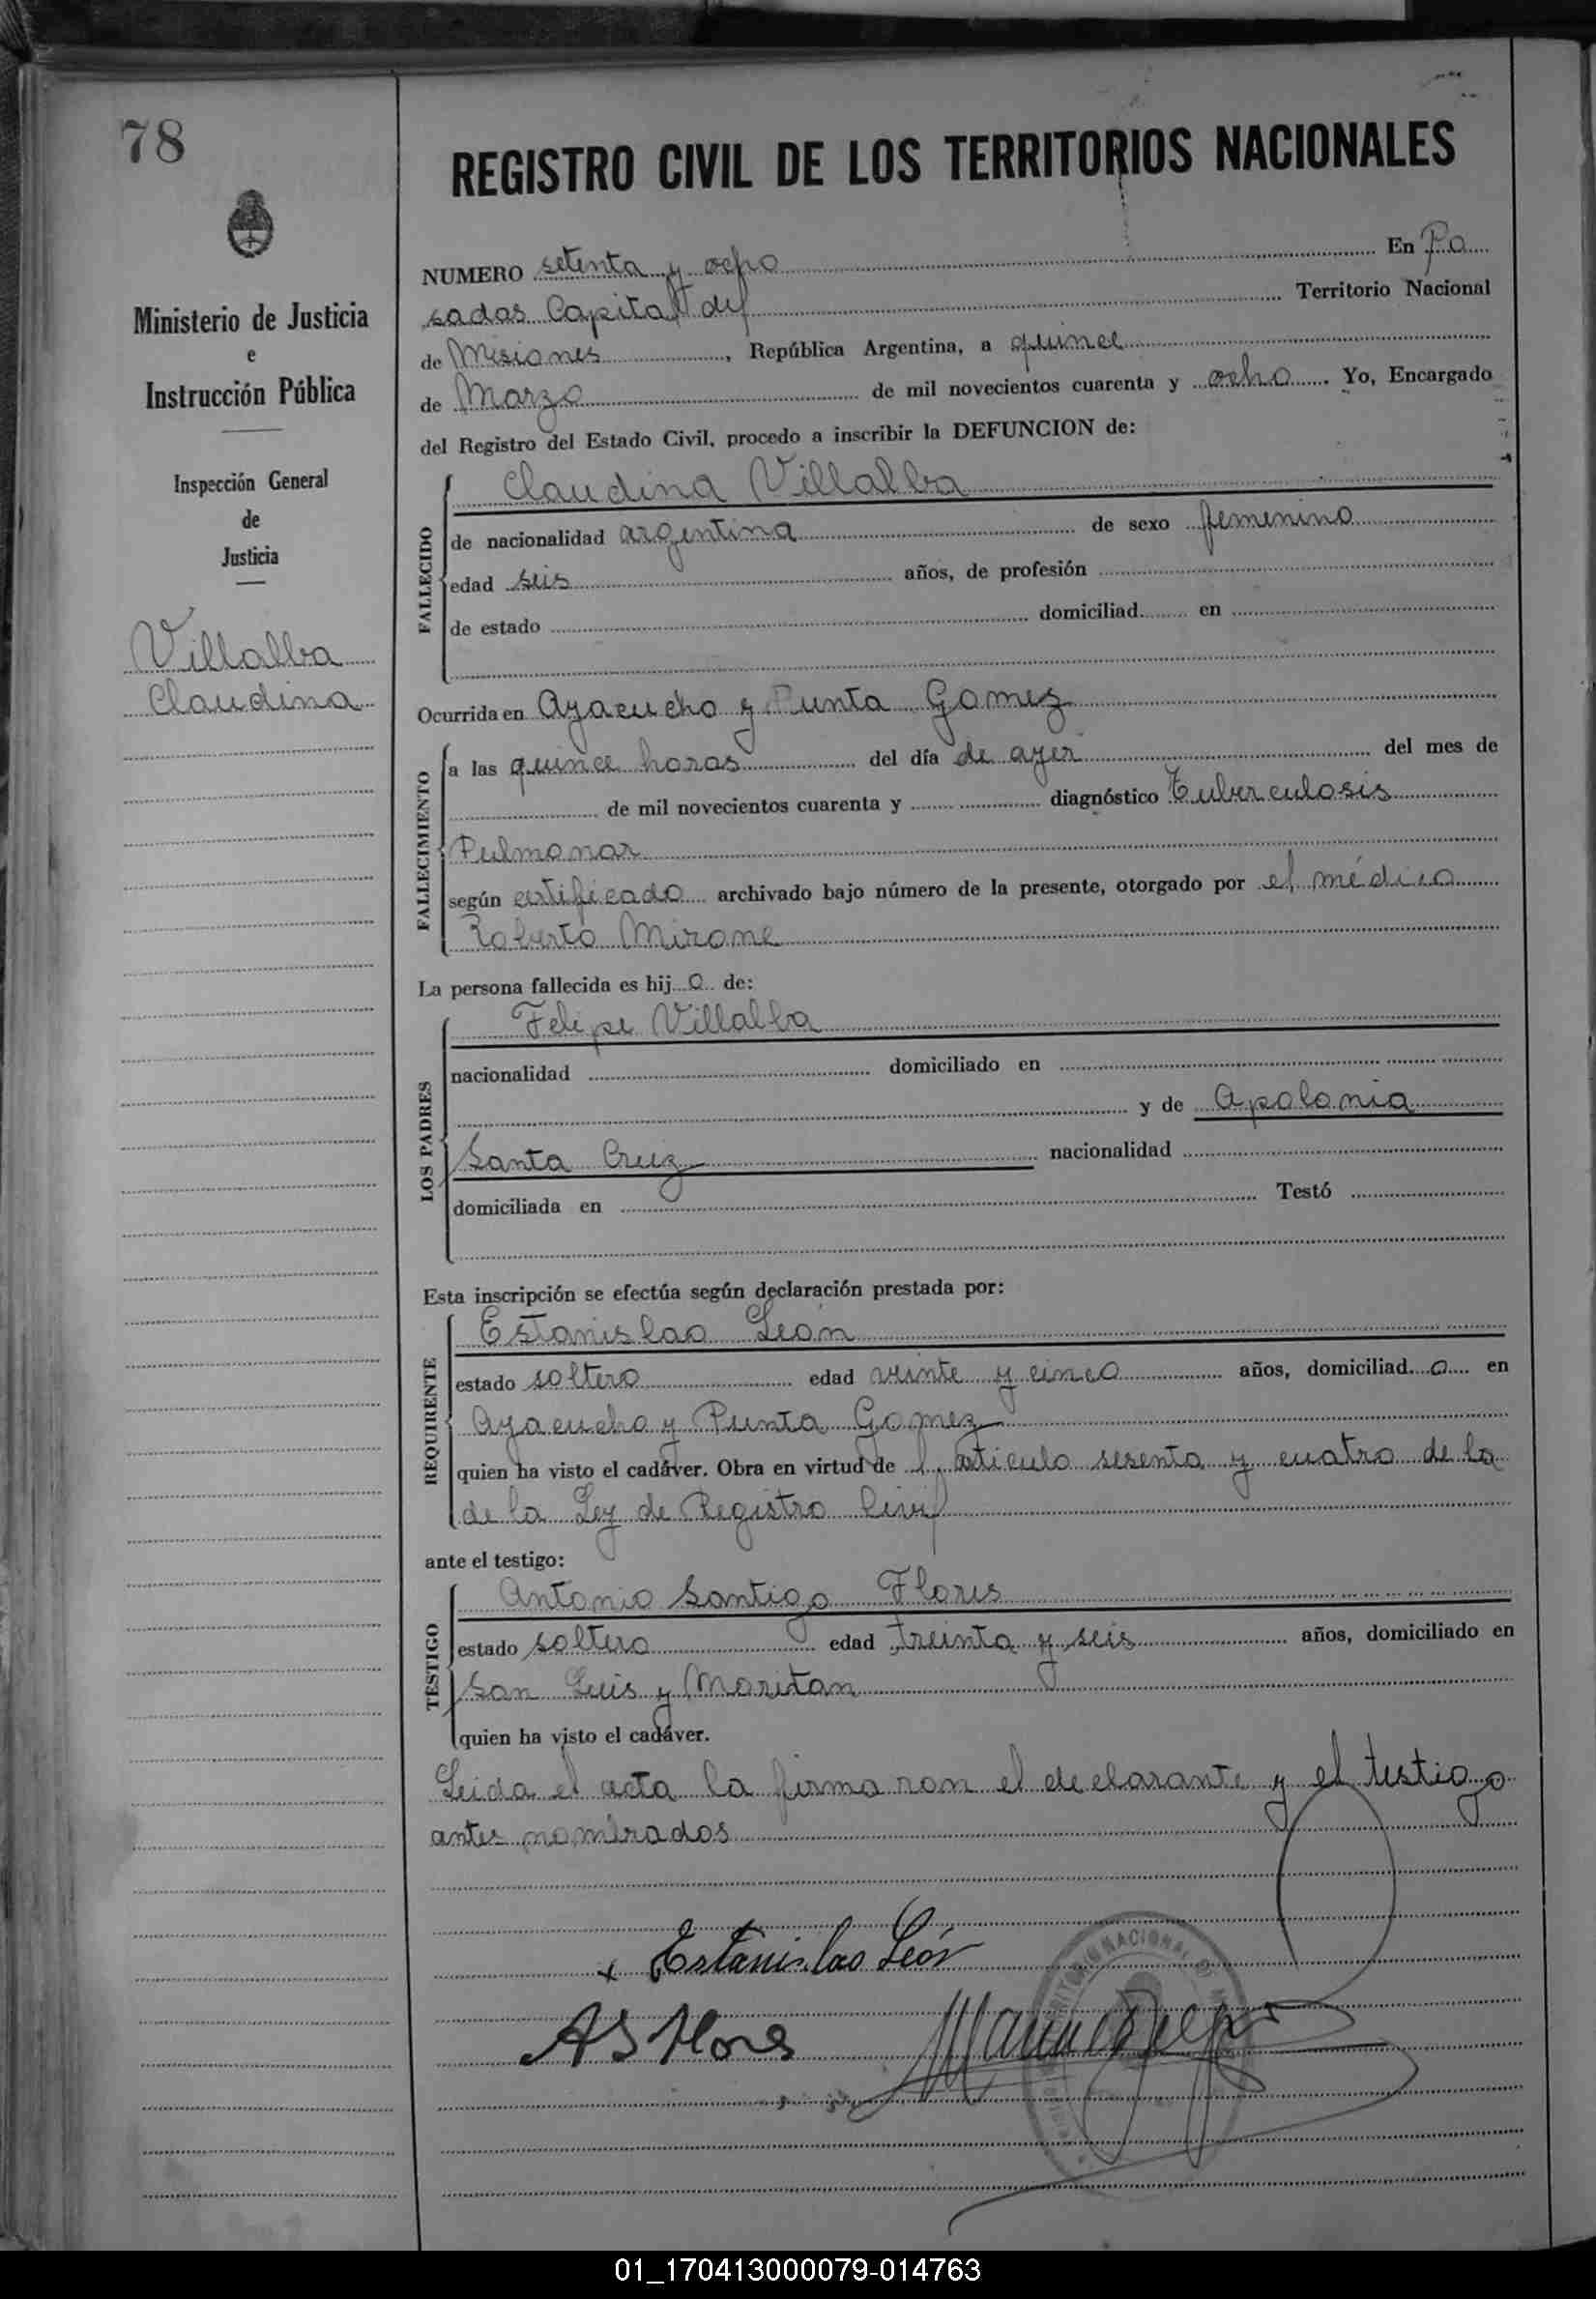 78
Ministerio de Justicia
e
Instrucción Pública
Inspección General
de
Justicia
Villalba
Claudina
REGISTRO CIVIL DE LOS TERRITORIOS NACIONALES
NUMERO setenta y ocho En Po
sadas Capital del Territorio Nacional
de Misiones, República Argentina, a quince
de Marzo de mil novecientos cuarenta y ocho. Yo, Encargado
del Registro del Estado Civil, procedo a inscribir la DEFUNCION de:
FALLECIDO
Claudina Villalba
de nacionalidad argentina de sexo femenino
edad seis años, de profesión
de estado domiciliad en
Ocurrida en Ayacucho y Punta Gomez
FALLECIMIENTO
a las quince horas del día de ayer del mes de
de mil novecientos cuarenta y diagnóstico Tuberculosis
Pulmonar
según certificado archivado bajo número de la presente, otorgado por el médico
Roberto Mirone
La persona fallecida es hij a de:
LOS PADRES
Felipe Villalba
nacionalidad domiciliado en
y de Apolonia
Santa Cruz nacionalidad
domiciliada en Testó
Esta inscripción se efectúa según declaración prestada por:
REQUIRENTE
Estanislao León
estado soltero edad veinte y cinco años, domiciliad o en
Ayacucho y Punta Gomez
quien ha visto el cadáver. Obra en virtud de l articulo sesenta y cuatro de la
de la Ley de Registro Civil
ante el testigo:
TESTIGO
Antonio Santigo Flores
estado soltero edad treinta y seis años, domiciliado en
San Luis y Moritan
quien ha visto el cadáver.
Leida el acta la firmaron el declarante y el testigo
antes nombrados
x Estanislao León
AS Flores
01_170413000079-014763